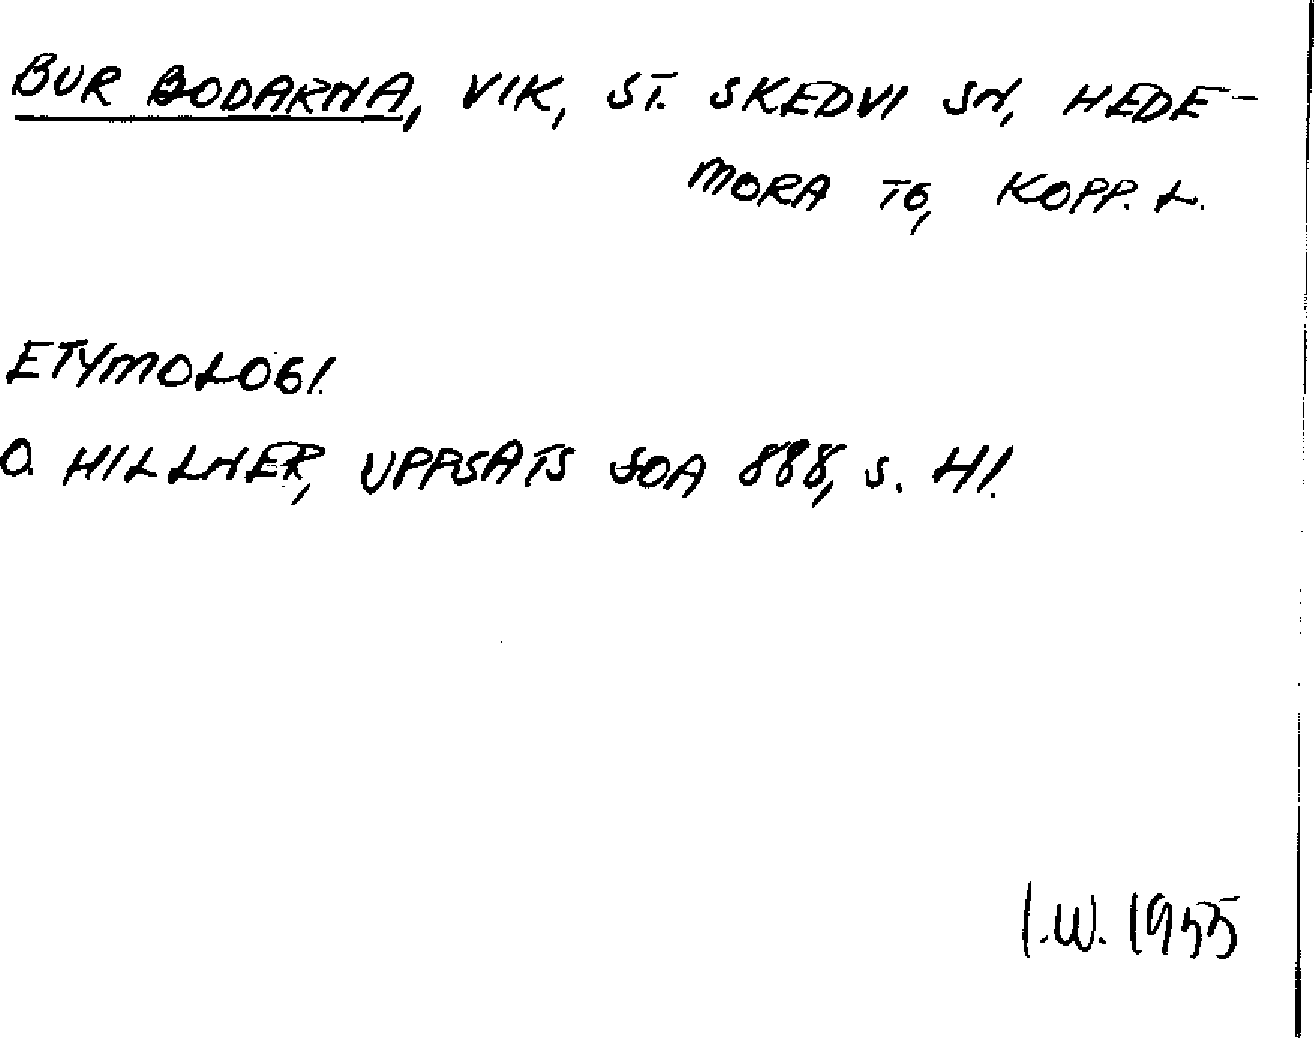 BUR BODARNA, VIK, ST. SKEDVI SN, HEDE-
MORA TG, KOPP. L.
ETYMOLOGI.
O. HILLNER, UPPSATS SOA 888, S. 41.
I.W. 1955